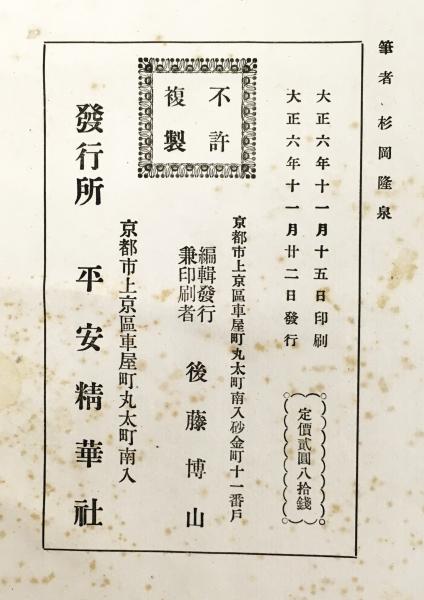 筆者 杉岡隆泉
大正六年十一月十五日印刷
大正六年十一月廿二日發行
定價貳圓八拾錢
不許
複製
京都市上京區車屋町丸太町南入砂金町十一番戶
編輯發行
兼印刷者
後藤博山
京都市上京區車屋町丸太町南入
發行所 平安精華社